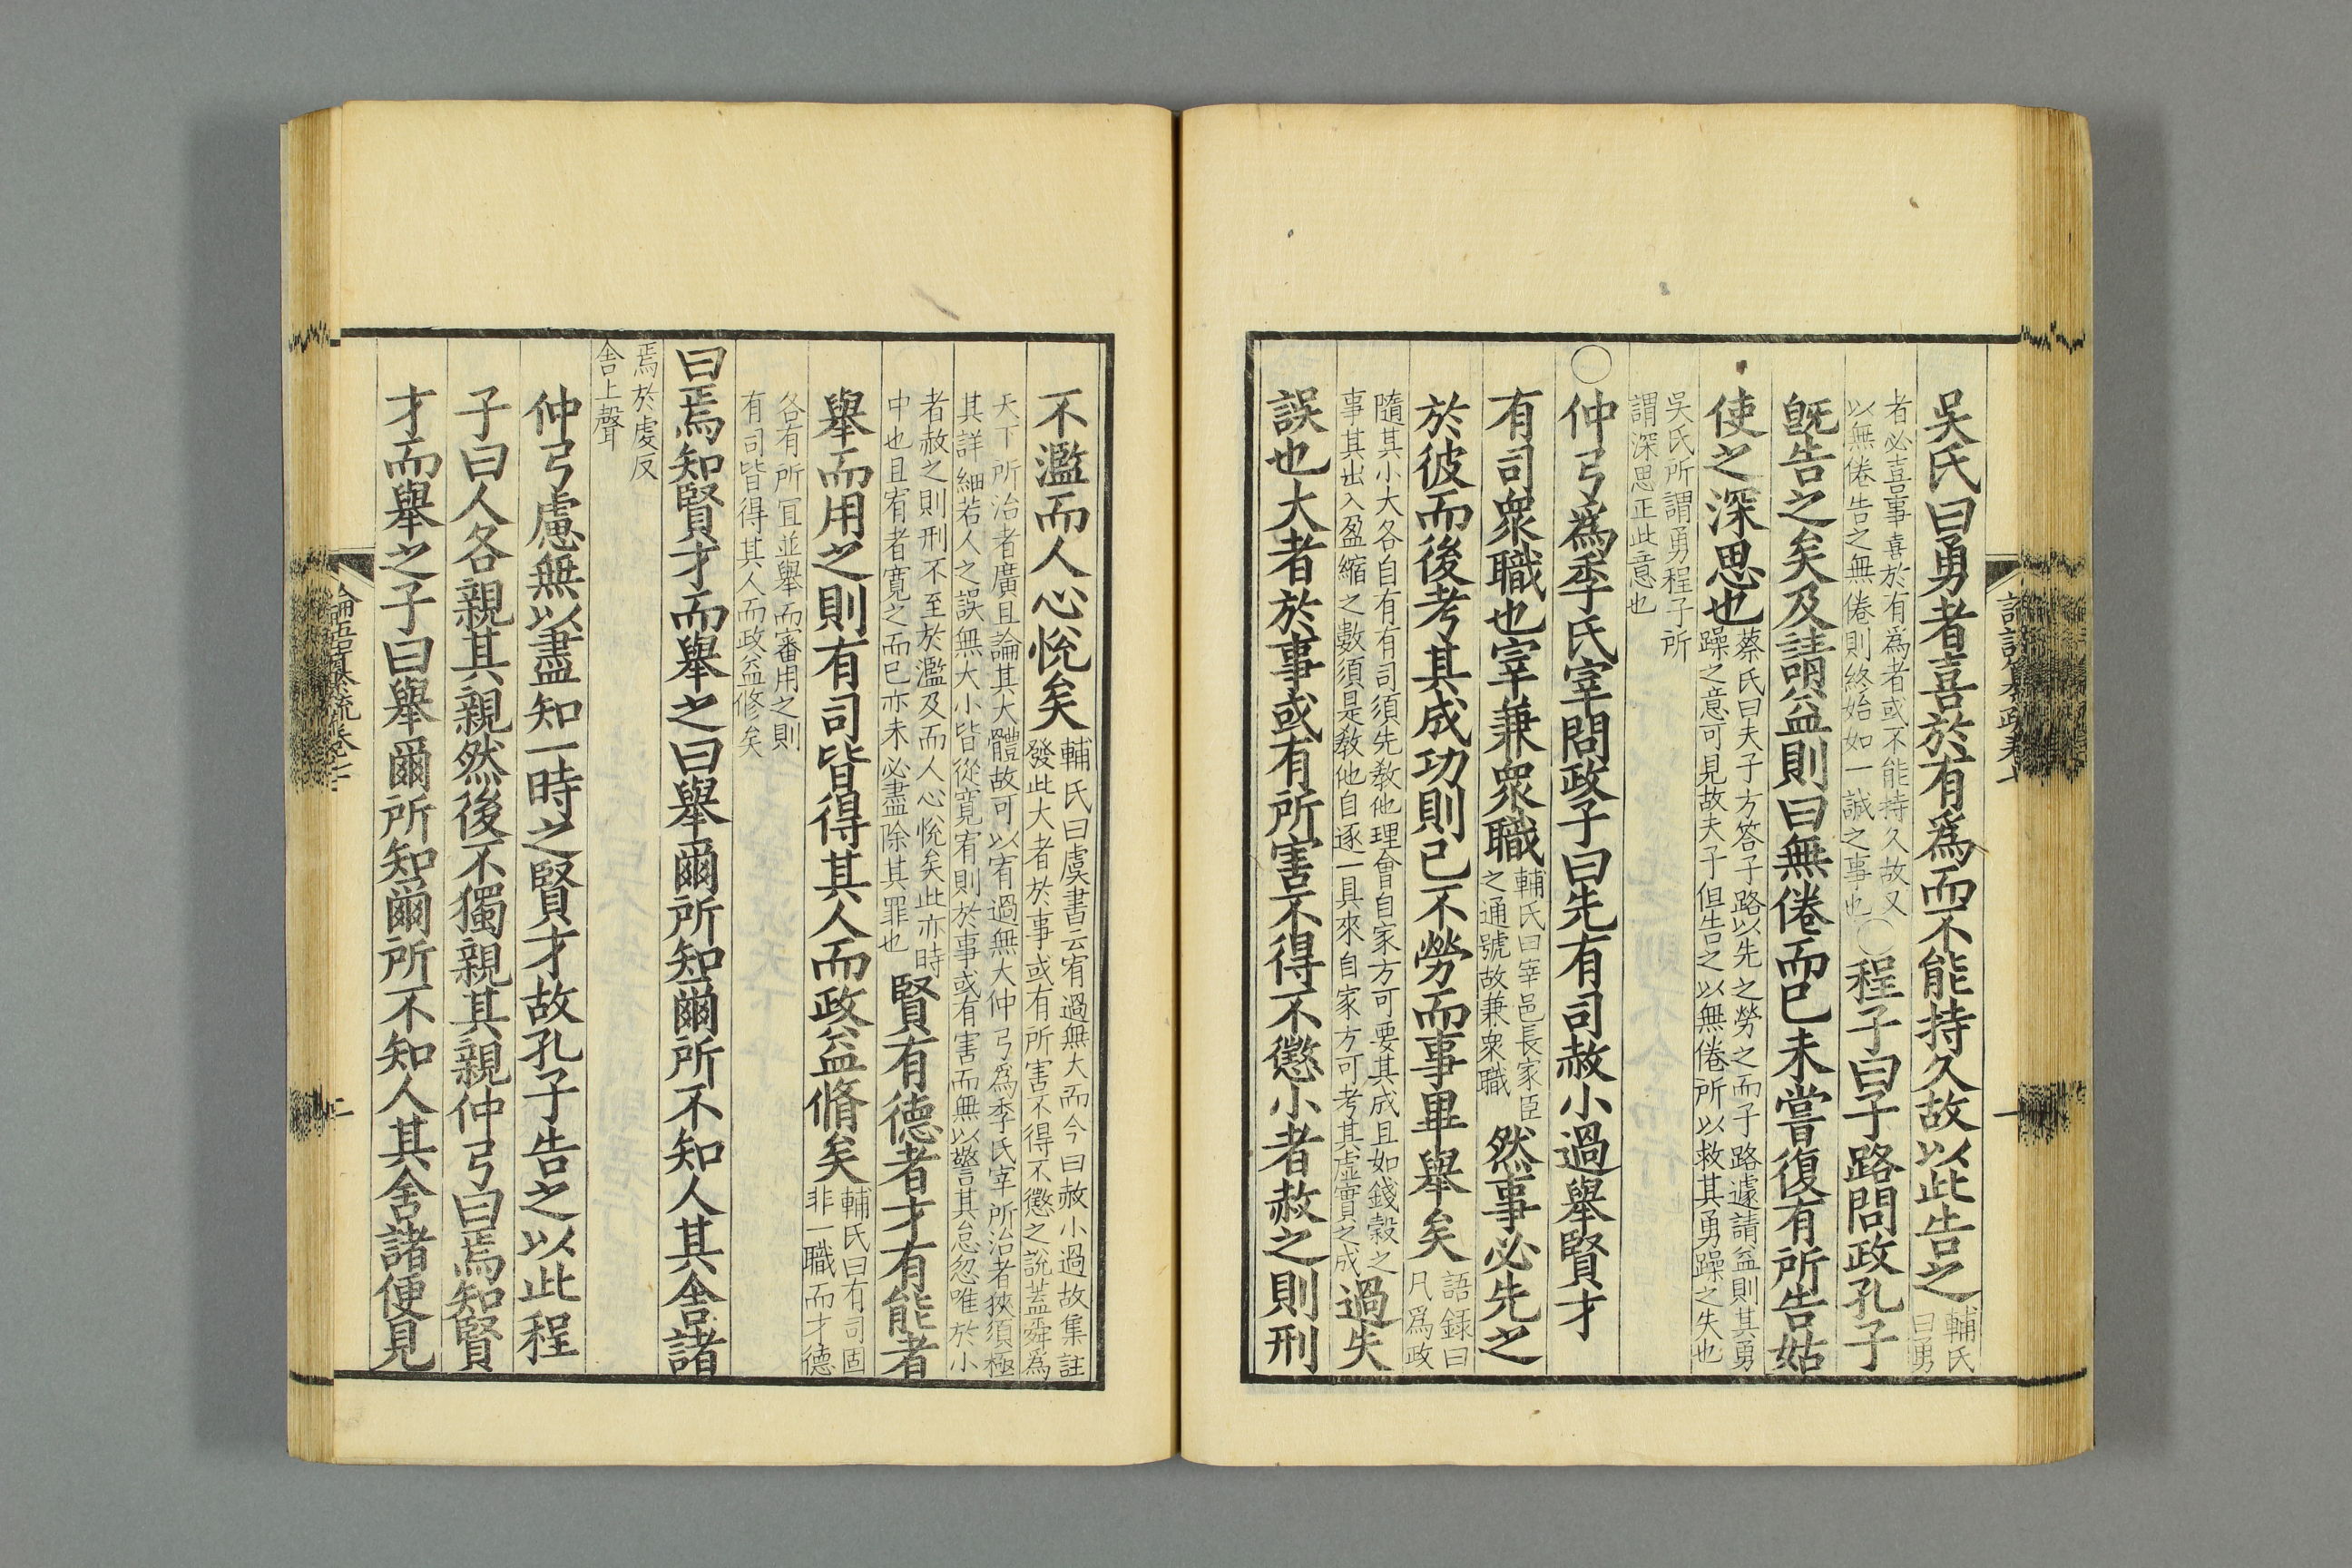 吳氏曰勇者喜於有爲而不能持久故以此告之輔氏曰勇
者必喜事喜於有爲者或不能持久故又以無倦告之無倦則終始如一誠之事也○程子曰子路問政孔子
既告之矣及請益則曰無倦而已未嘗復有所告姑
使之深思也蔡氏曰夫子方答子路以先之勞之而子路遽請益則其勇躁之意可見故夫子但告之以無倦所以救其勇躁之失也
吳氏所謂勇程子所謂深思正此意也
○仲弓爲季氏宰問政子曰先有司赦小過舉賢才
有司衆職也宰兼衆職輔氏曰宰邑長家臣之通號故兼衆職然事必先之
於彼而後考其成功則已不勞而事畢舉矣語錄曰凡爲政
隨其小大各自有有司須先敎他理會自家方可要其成且如錢穀之事其出入盈縮之數須是敎他自逐一具來自家方可考其虛實之成過失
誤也大者於事或有所害不得不懲小者赦之則刑
不濫而人心悅矣輔氏曰虞書云宥過無大而今曰赦小過故集註發此大者於事或有所害不得不懲之說蓋舜爲
天下所治者廣且論其大體故可以宥過無大仲弓爲季氏宰所治者狹須極其詳細若人之誤無大小皆從寬宥則於事或有害而無以警其怠忽唯於小
者赦之則刑不至於濫及而人心悅矣此亦時中也且宥者寬之而已亦未必盡除其罪也賢有德者才有能者
舉而用之則有司皆得其人而政益脩矣輔氏曰有司固非一職而才德
各有所宜並舉而審用之則有司皆得其人而政益修矣
曰焉知賢才而舉之曰舉爾所知爾所不知人其舍諸
焉於虔反舍上聲
仲弓慮無以盡知一時之賢才故孔子告之以此程
子曰人各親其親然後不獨親其親仲弓曰焉知賢
才而舉之子曰舉爾所知爾所不知人其舍諸便見